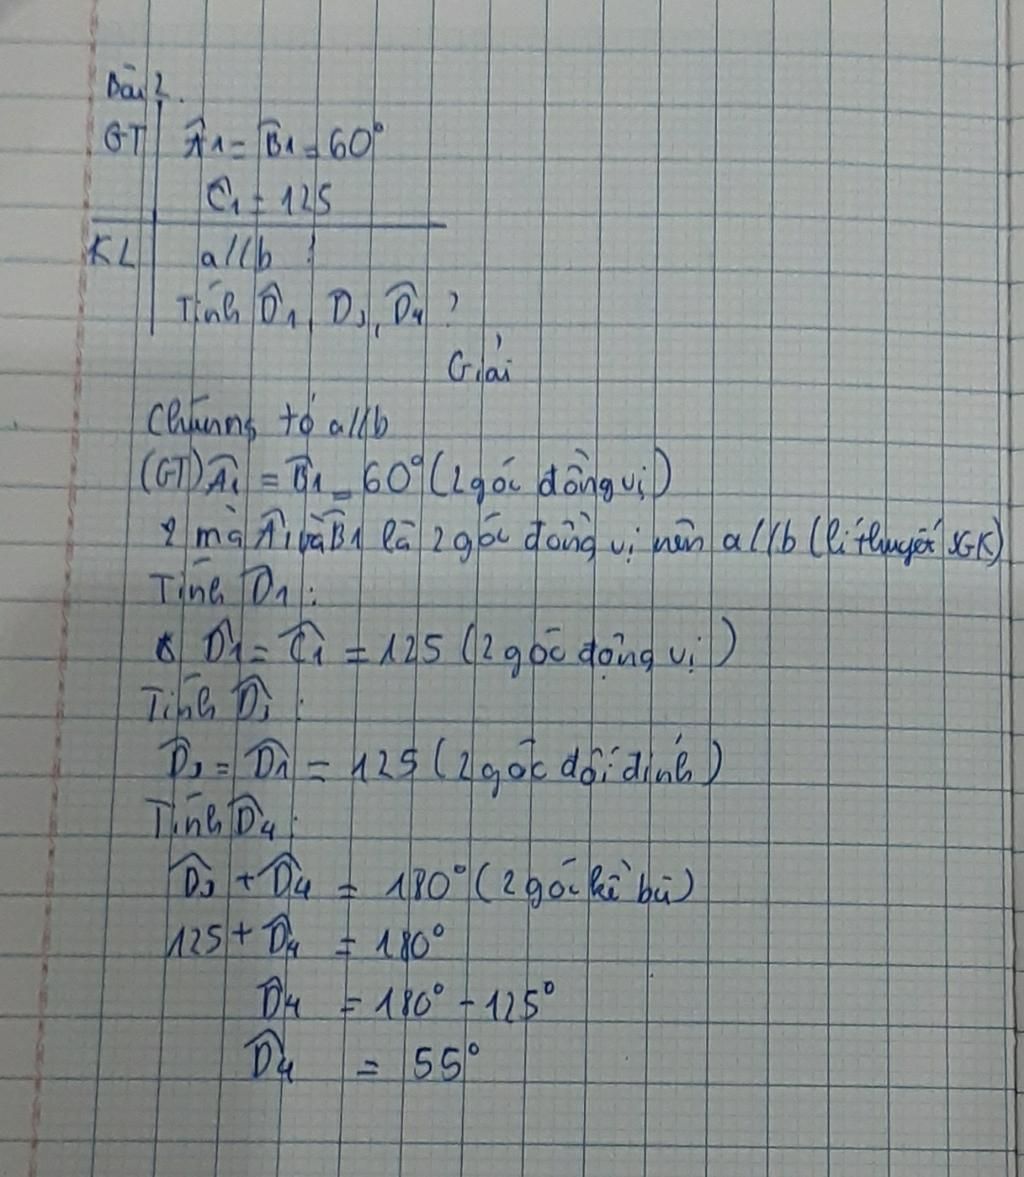 Bài 2.
GT Â1 = B̂1 = 60°
Ĉ1 = 125
KL a//b
Tính D̂1, D3, D̂4 ?
Giải
Chứng tỏ a//b
(GT) Â1 = B̂1 = 60° (2 góc đồng vị)
mà Â1 và B̂1 là 2 góc đồng vị nên a//b (lí thuyết SGK)
Tính D̂1 :
D̂1 = Ĉ1 = 125 (2 góc đồng vị)
Tính D̂3 :
D̂3 = D̂1 = 125 (2 góc đối đỉnh)
Tính D̂4 :
D̂3 + D̂4 = 180° (2 góc kề bù)
125 + D̂4 = 180°
D̂4 = 180° - 125°
D̂4 = 55°